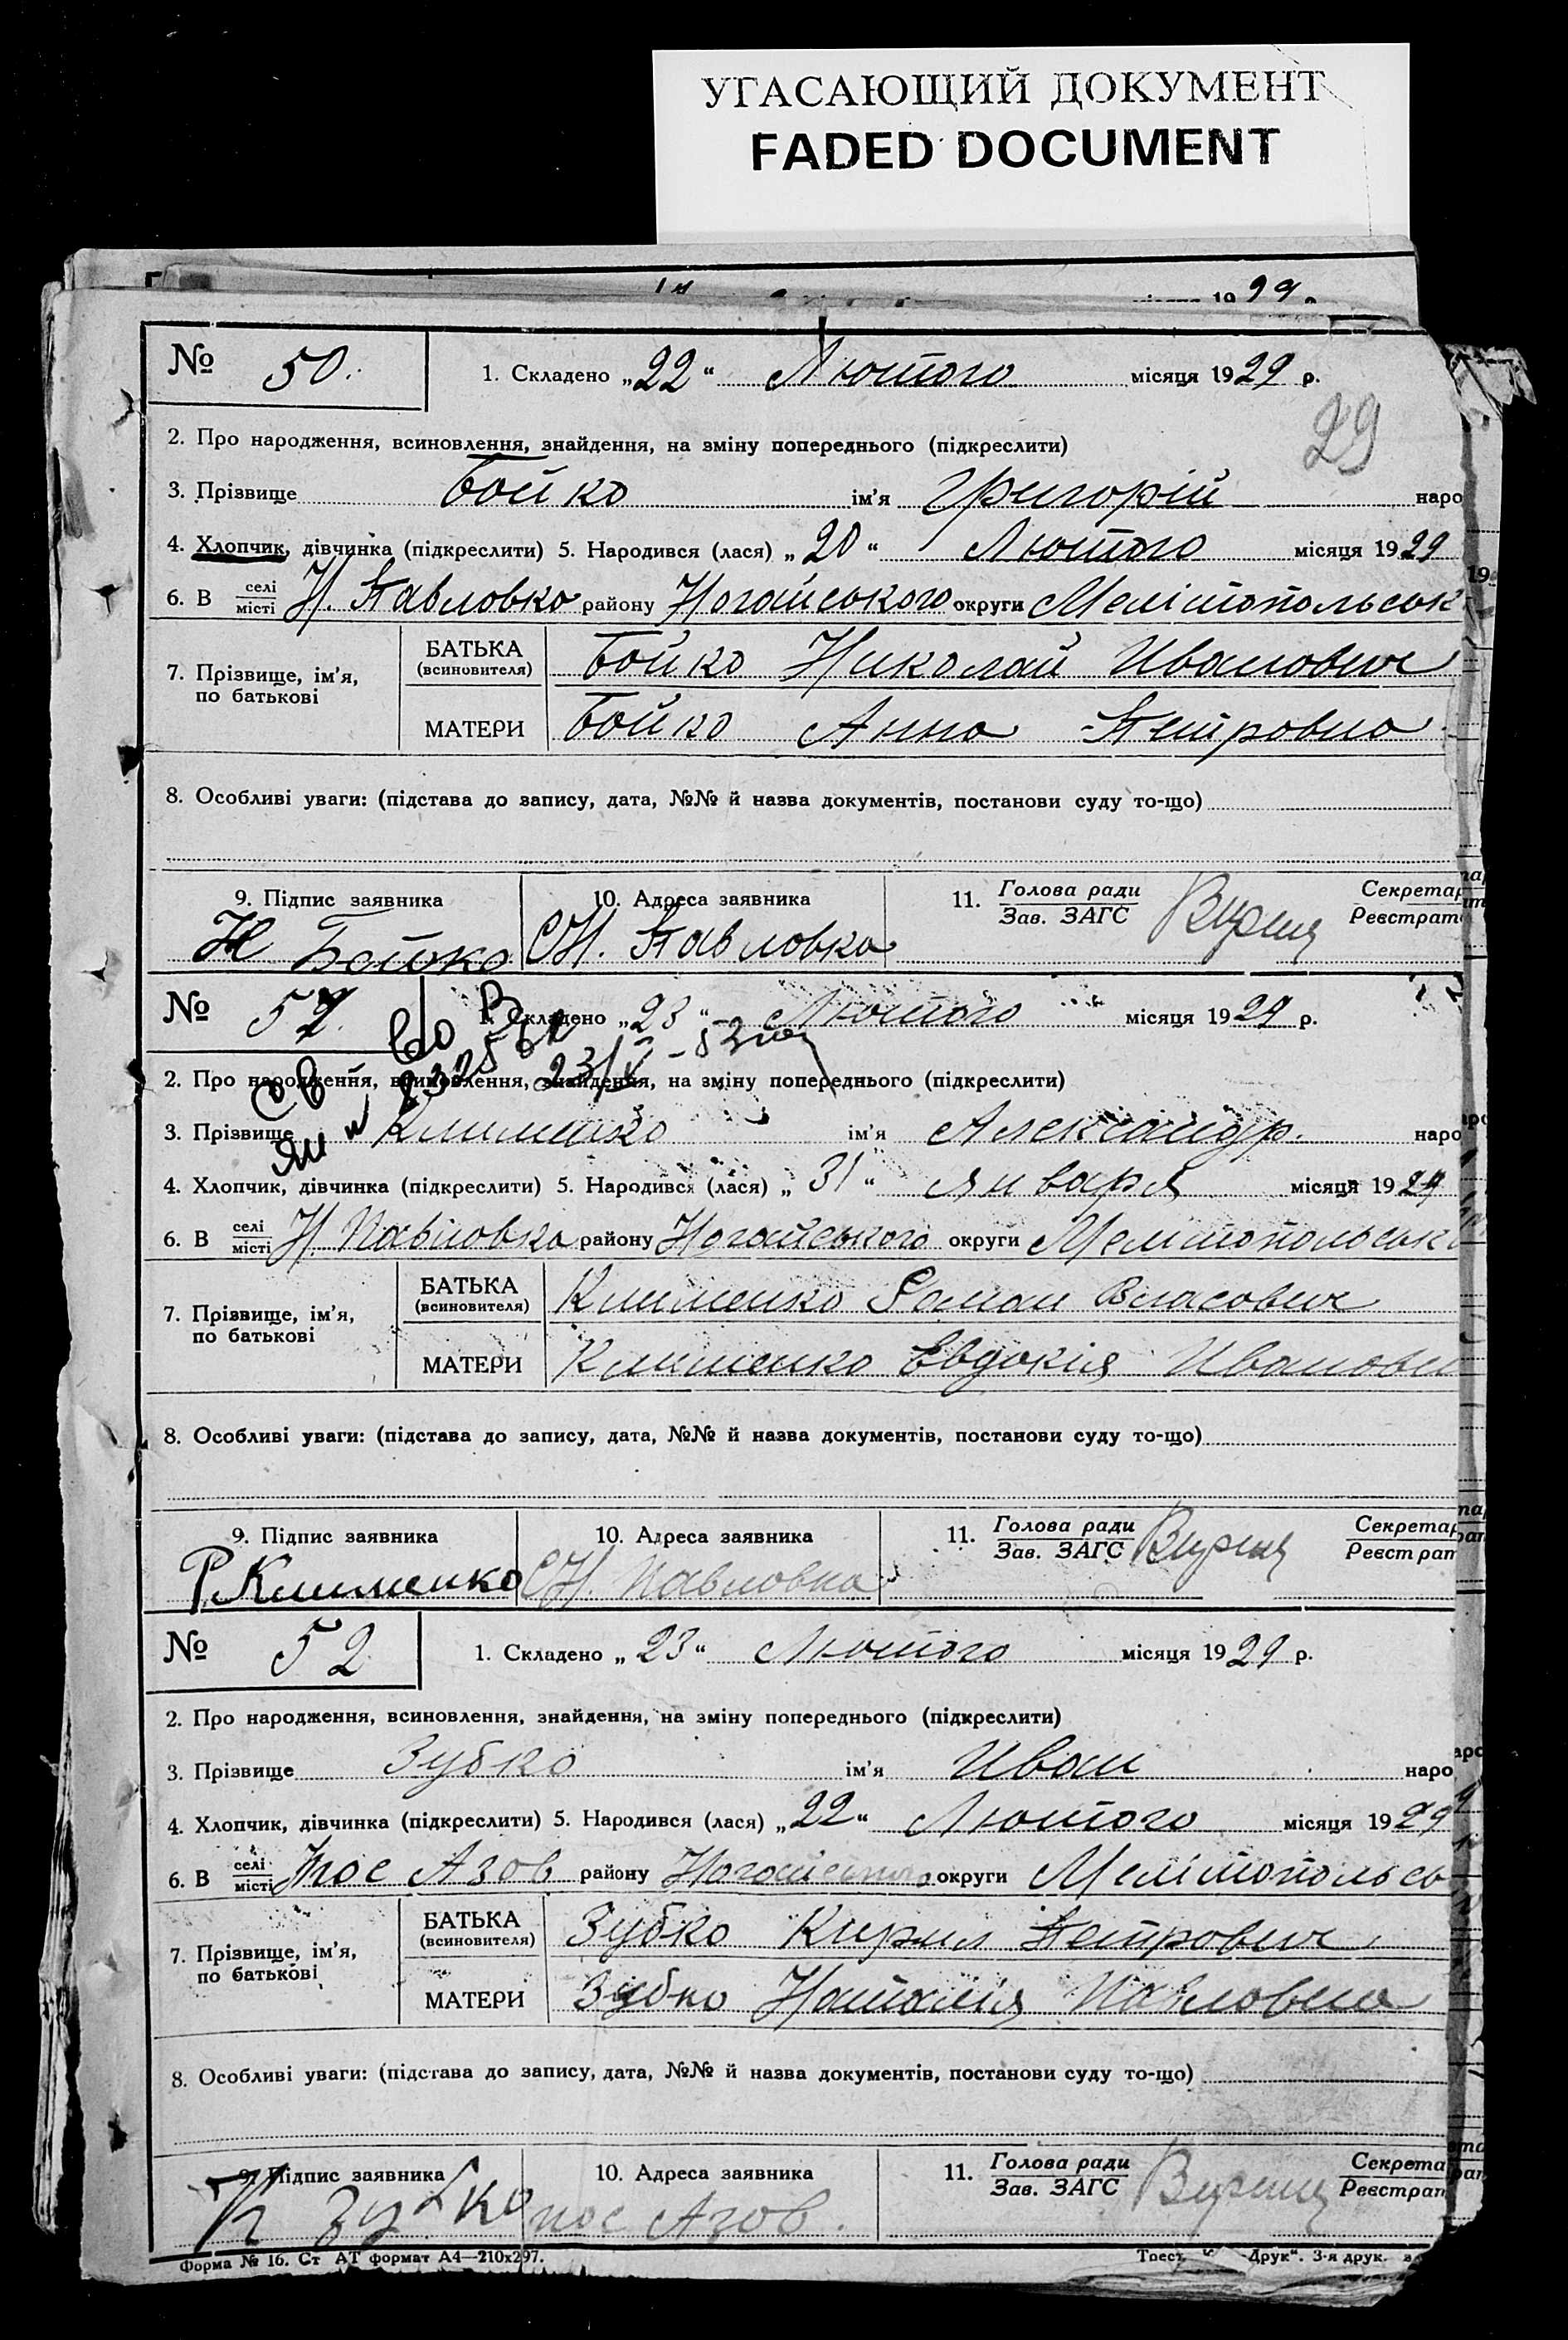 УГАСАЮЩИЙ ДОКУМЕНТ
FADED DOCUMENT
№ 50. 1. Складено „22“ Лютого місяця 1929 р.
29
2. Про народження, всиновлення, знайдення, на зміну попереднього (підкреслити)
3. Прізвище Бойко ім'я Григорій наро
4. Хлопчик, дівчинка (підкреслити) 5. Народився (лася) „20“ Лютого місяця 1929
6. В селі місті Н. Павловко району Ногайського округи Мелітопольськ
7. Прізвище, ім'я, по батькові БАТЬКА (всиновителя) Бойко Николай Иванович
МАТЕРИ Бойко Анна Петровна
8. Особливі уваги: (підстава до запису, дата, №№ й назва документів, постанови суду то-що)
9. Підпис заявника 10. Адреса заявника 11. Голова ради Зав. ЗАГС Секретар Реєстрат
Н Бойко С Н. Павловка
№ 1. Складено „23“ Лютого місяця 1929 р.
2. Про народження, всиновлення, знайдення, на зміну попереднього (підкреслити)
3. Прізвище Клименко ім'я Александр. наро
4. Хлопчик, дівчинка (підкреслити) 5. Народився (лася) „31“ января місяця 1929
6. В селі місті Н. Павловка району Ногайського округи Мелітопольськ
7. Прізвище, ім'я, по батькові БАТЬКА (всиновителя) Клименко Роман Власович
МАТЕРИ Клименко Евдокія Ивановн
8. Особливі уваги: (підстава до запису, дата, №№ й назва документів, постанови суду то-що)
9. Підпис заявника 10. Адреса заявника 11. Голова ради Зав. ЗАГС Секретар Реєстрат
Р. Клименко С Н. Павловка
№ 52 1. Складено „23“ Лютого місяця 1929 р.
2. Про народження, всиновлення, знайдення, на зміну попереднього (підкреслити)
3. Прізвище Зубко ім'я Иван наро
4. Хлопчик, дівчинка (підкреслити) 5. Народився (лася) „22“ Лютого місяця 1929
6. В селі місті пос Азов району Ногайського округи Мелітопольсь
7. Прізвище, ім'я, по батькові БАТЬКА (всиновителя) Зубко Кирил Петрович
МАТЕРИ Зубко Наталія Павловна
8. Особливі уваги: (підстава до запису, дата, №№ й назва документів, постанови суду то-що)
9. Підпис заявника 10. Адреса заявника 11. Голова ради Зав. ЗАГС Секрета Реєстрат
К Зубко пос Азов.
Форма № 16. Ст АТ формат А4—210х297. Трест Друк“. 3-я друк.